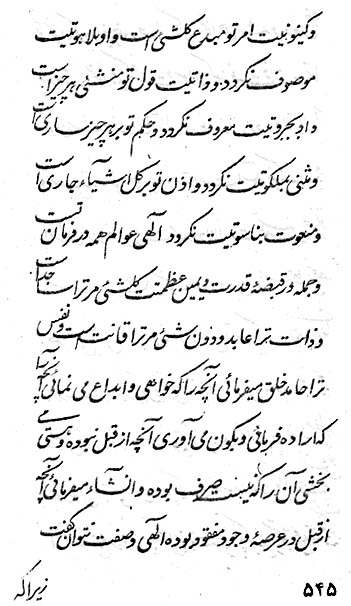 و کینونیت امر تو مبدع کلشئ است و او بلاهوتیت
موصوف نکردد و ذاتیت قول تو منشئ هر چیز است
و او بجبروتیت معروف نکردد و حکم تو بر هر چیز ساری است
و مثنی بملکوتیت نکردد و اذن تو بر کل اشیآء جاری است
و منعوت بناسوتیت نکردد الهی عوالم همه در فرمان تست
و جمله در قبضهٔ قدرت و یمین عظمتت کلشئ مر ترا ساجد است
و ذات ترا عابد و دون شئ مر ترا قانت است و نفس
ترا حامد خلق میفرمائی آنچه را که خواهی و ابداع می نمائی آنچه را
که اراده فرمائی و بکون می آوری آنچه از قبل نبوده و هستی می
بخشی آن را که نیست صرف بوده و انشاء میفرمائی آنچه
از قبل در عرصهٔ وجود مفقود بوده الهی وصفت نتوان گفت
زیرا که
۵۴۵